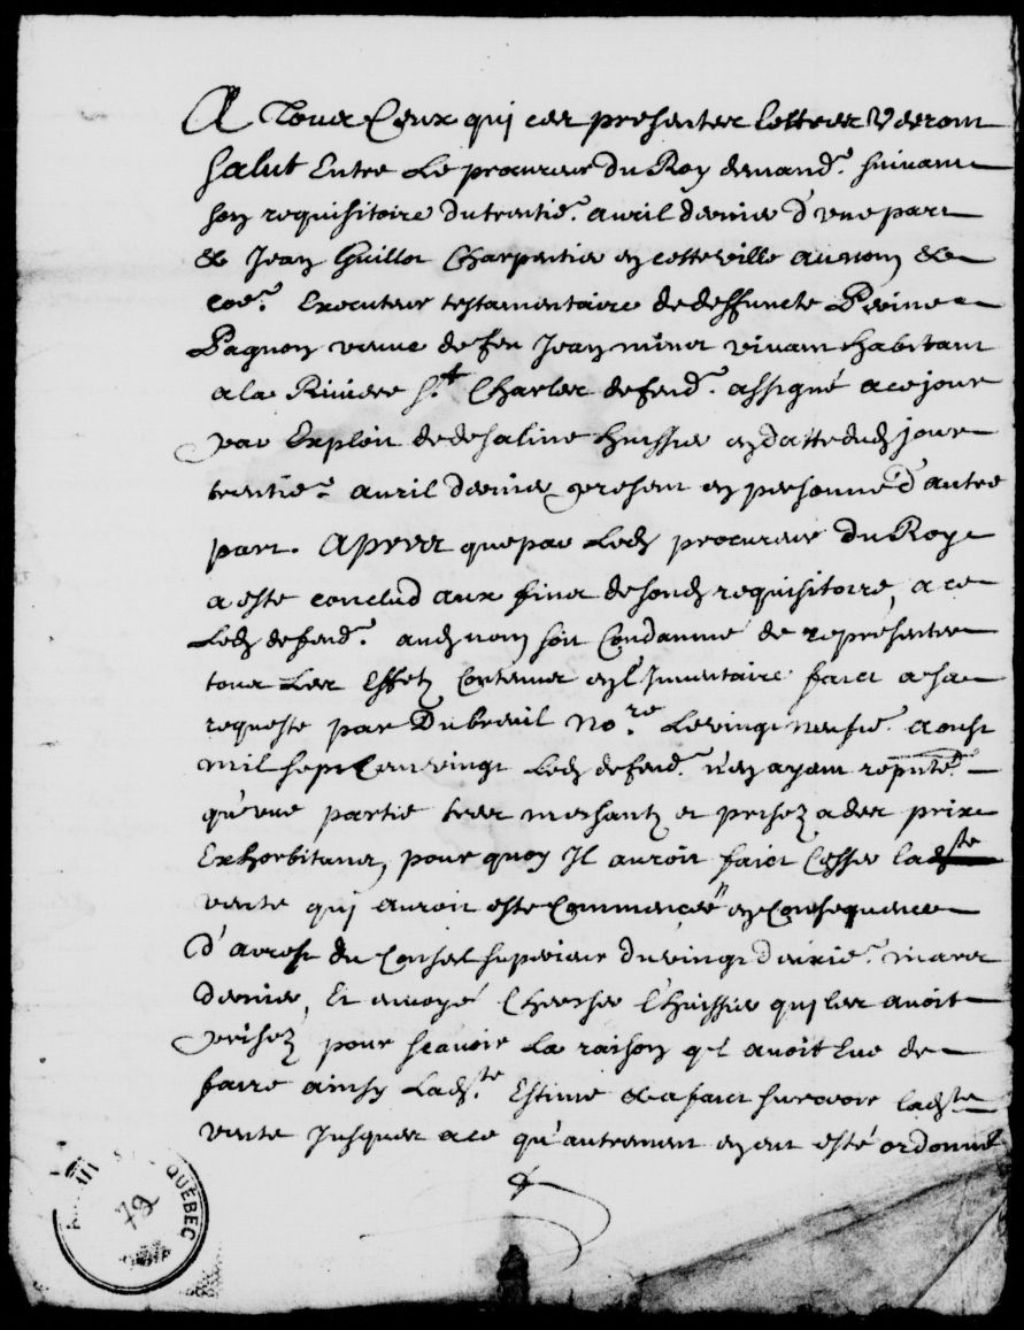 A Tous Ceux qui ces presentes lettres Verront
Salut Entre Le procureur Du Roy demand.r suivant
son requisitoire du trentie.e avril dernier d'une part
& Jean Guillot Charpentier en cette ville au nom &
co.e Executeur testamentaire de deffuncte Perine
Pagnon veuve de feu Jean minet vivant habitant
a la Riviere S.t Charles defend.r assigné a ce jour
par Exploit de desaline huissier en datte dud jour
trentie.e avril dernier present en personne d'autre
part. Apres que par Led procureur Du Roy
a este conclud aux fins de sond requisitoire, a ce
Led defend.r aud nom soit Condamné de representer
tous Les Effetz Contenus en l'Inventaire faict a sa
requeste par Dubreuil No.re Le vingt neufie. aoust
mil sept Cent vingt Led defend.r n'en ayant reputé
qu'une partie tres meschantz et prisez a des prix
Exhorbitans, pour quoy Il auroit faict Cesser lad.te
vente qui auroit esté Commencée en Consequence
d'arrest du Conseil superieur du vingt deuxie.e mars
dernier, Et envoyé Chercher l'huissier qui les avoit
prisez pour scavoir La raison q'l avoit Eue de
faire ainsy Lad.te Estime & a faict surceoir lad.te
vente Jusques a ce qu'autrement en eut esté ordonné
QUÉBEC
79